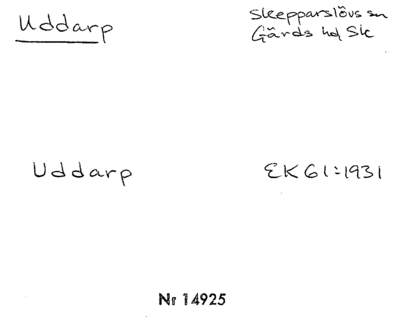 Uddarp
Skepparslövs sn
Gärds hd Sk
Uddarp
EK 61:1931
Nr 14925